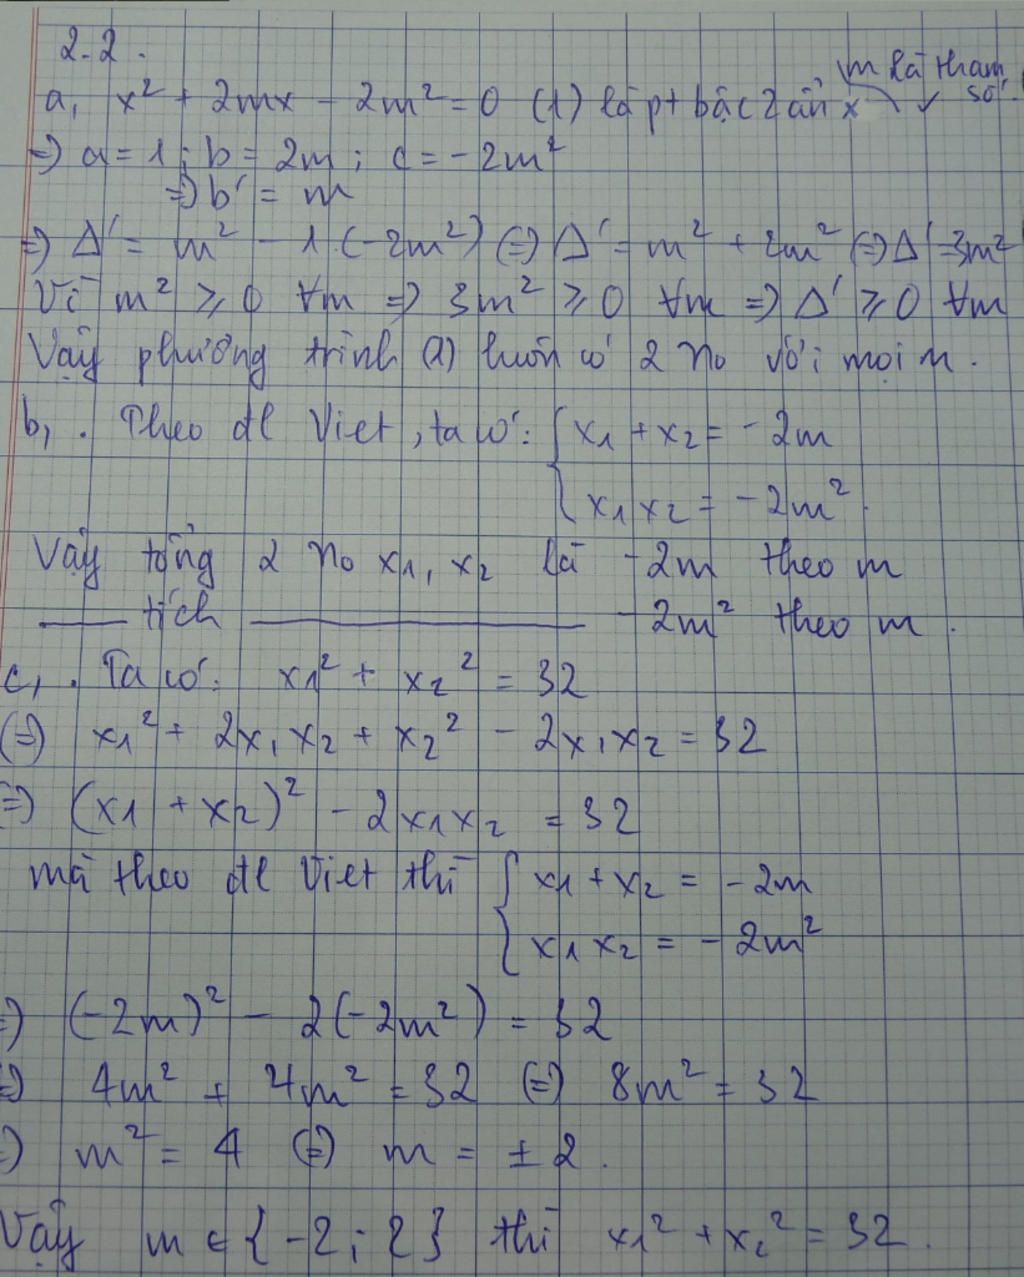 2.2.
m là tham số.
a, x² + 2mx - 2m² = 0 (1) là pt bậc 2 ẩn x
=> a = 1 ; b = 2m ; c = -2m²
=> b' = m
=> Δ' = m² - 1.(-2m²) (=) Δ' = m² + 2m² (=) Δ' = 3m²
Vì m² ≥ 0 ∀m => 3m² ≥ 0 ∀m => Δ' ≥ 0 ∀m
Vậy phương trình (1) luôn có 2 no với mọi m.
b, . Theo đl Viet, ta có: { x1 + x2 = -2m
x1 x2 = -2m².
Vậy tổng 2 no x1, x2 là -2m theo m
—— tích ———————— -2m² theo m.
c, . Ta có: x1² + x2² = 32
(=) x1² + 2x1x2 + x2² - 2x1x2 = 32
=) (x1 + x2)² - 2x1x2 = 32
mà theo đl Viet thì { x1 + x2 = -2m
x1 x2 = -2m²
=) (-2m)² - 2(-2m²) = 32
=) 4m² + 4m² = 32 (=) 8m² = 32
=) m² = 4 (=) m = ± 2.
Vậy m ∈ {-2; 2} thì x1² + x2² = 32.